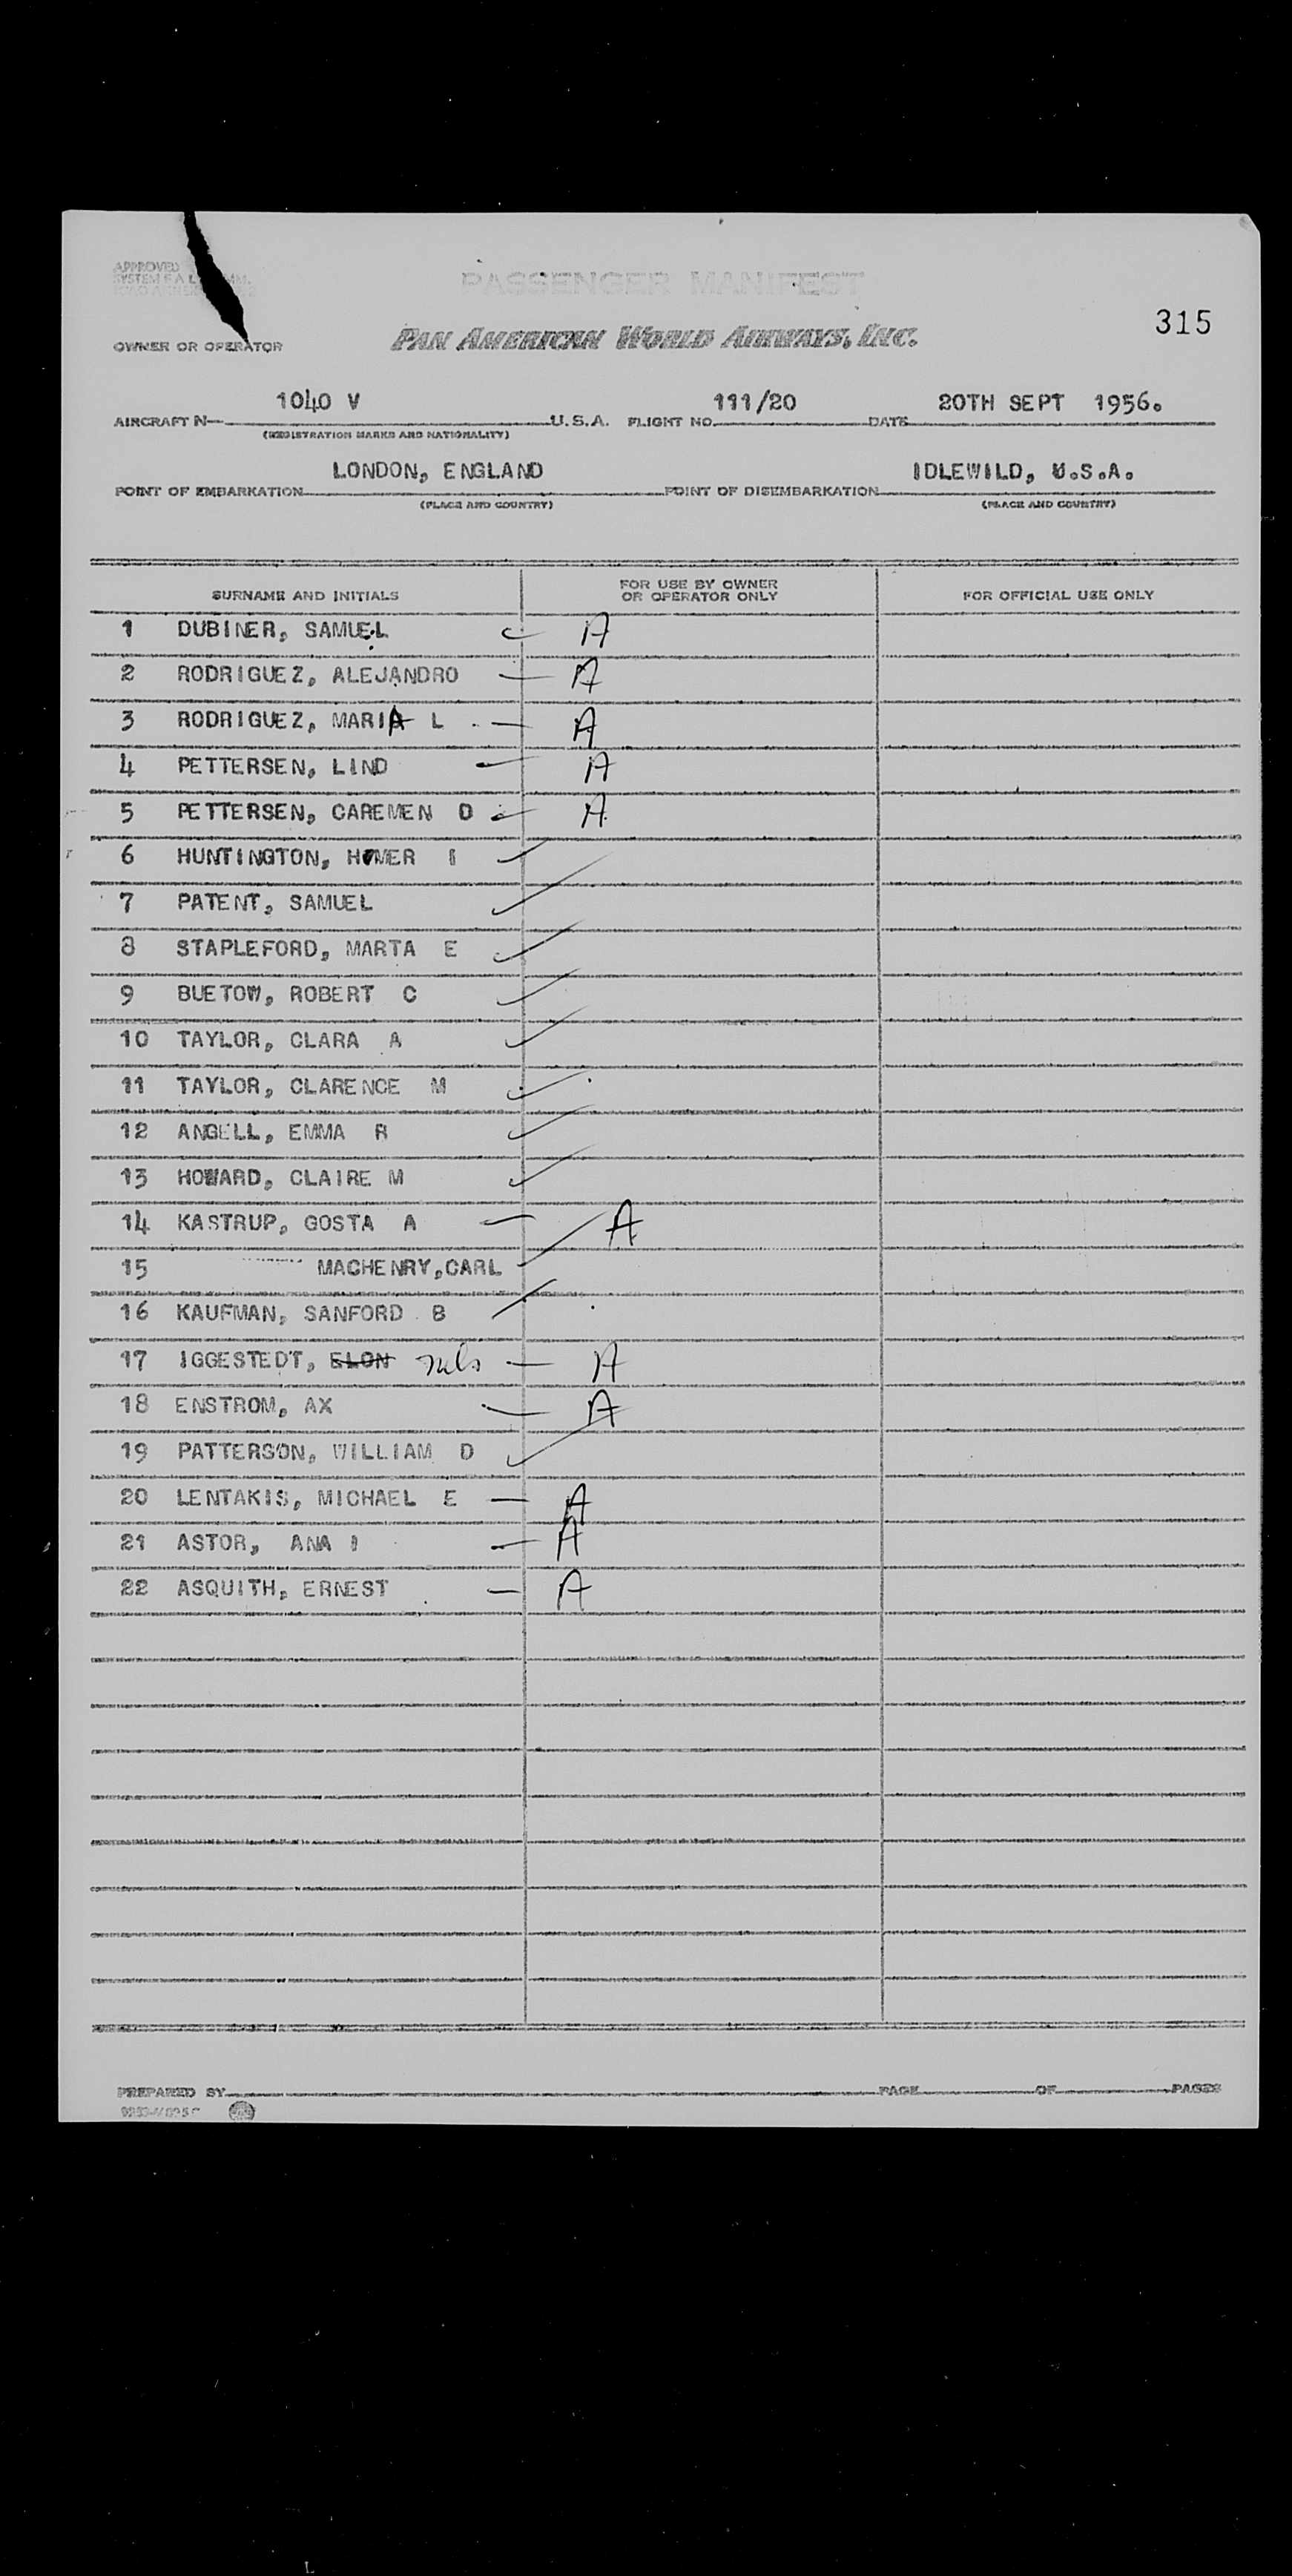 APPROVED
SYSTEM F.A.
PASSENGER MANIFEST
315
OWNER OR OPERATOR PAN AMERICAN WORLD AIRWAYS, INC.
AIRCRAFT N— 1040 V U.S.A. FLIGHT NO. 111/20 DATE 20TH SEPT 1956.
(REGISTRATION MARKS AND NATIONALITY)
POINT OF EMBARKATION LONDON, ENGLAND POINT OF DISEMBARKATION IDLEWILD, U.S.A.
(PLACE AND COUNTRY) (PLACE AND COUNTRY)
SURNAME AND INITIALS FOR USE BY OWNER OR OPERATOR ONLY FOR OFFICIAL USE ONLY
1 DUBINER, SAMUEL A
2 RODRIGUEZ, ALEJANDRO A
3 RODRIGUEZ, MARIA L A
4 PETTERSEN, LIND A
5 PETTERSEN, CAREMEN D A
6 HUNTINGTON, HOMER I
7 PATENT, SAMUEL
8 STAPLEFORD, MARTA E
9 BUETOW, ROBERT C
10 TAYLOR, CLARA A
11 TAYLOR, CLARENCE M
12 ANGELL, EMMA R
13 HOWARD, CLAIRE M
14 KASTRUP, GOSTA A A
15 MACHENRY,CARL
16 KAUFMAN, SANFORD B
17 IGGESTEDT, ELON Nils A
18 ENSTROM, AX A
19 PATTERSON, WILLIAM D
20 LENTAKIS, MICHAEL E A
21 ASTOR, ANA I A
22 ASQUITH, ERNEST A
PREPARED BY PAGE OF PAGES